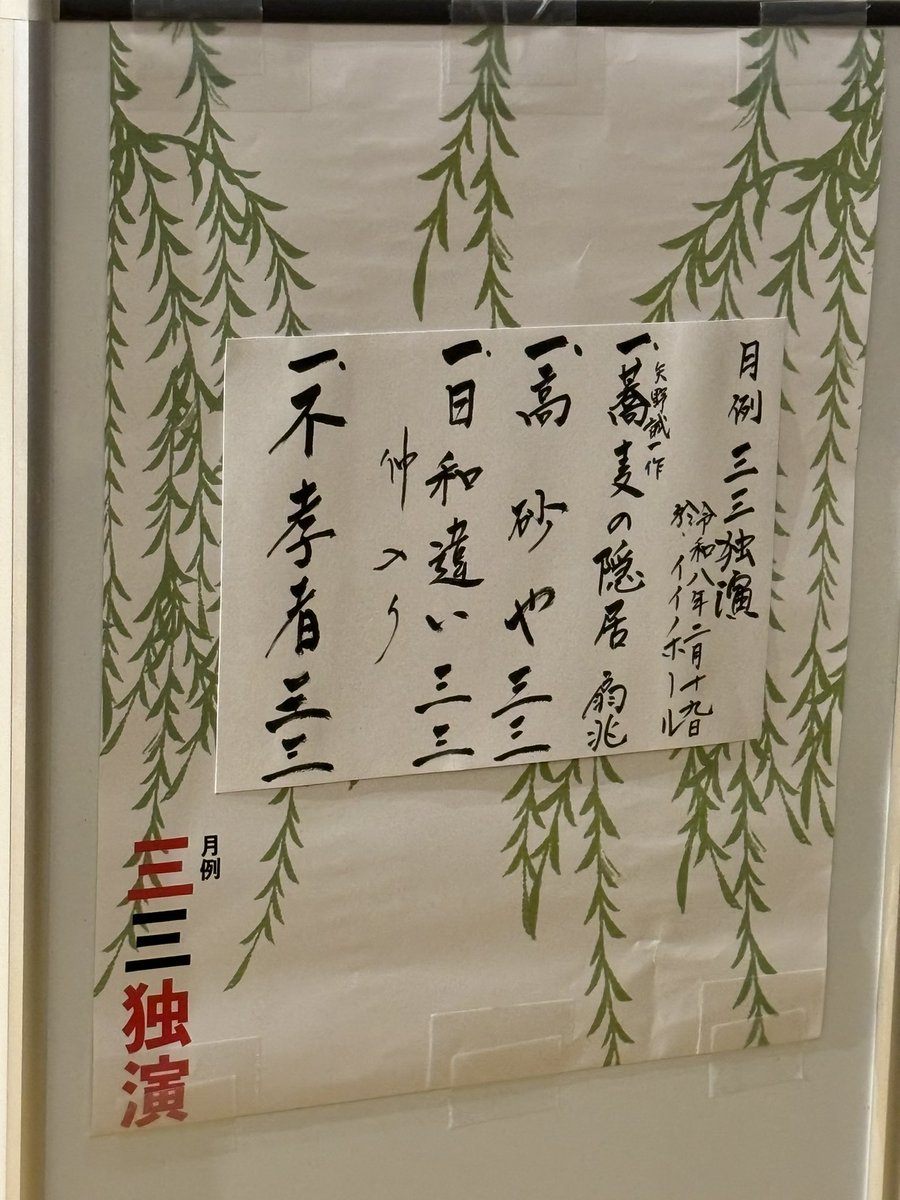 月例 三三独演
令和八年二月十九日
於・イイノホール
矢野誠一作
一、蕎麦の隠居 扇兆
一、高砂や 三三
一、日和違い 三三
仲入り
一、不孝者 三三
月例
三三独演